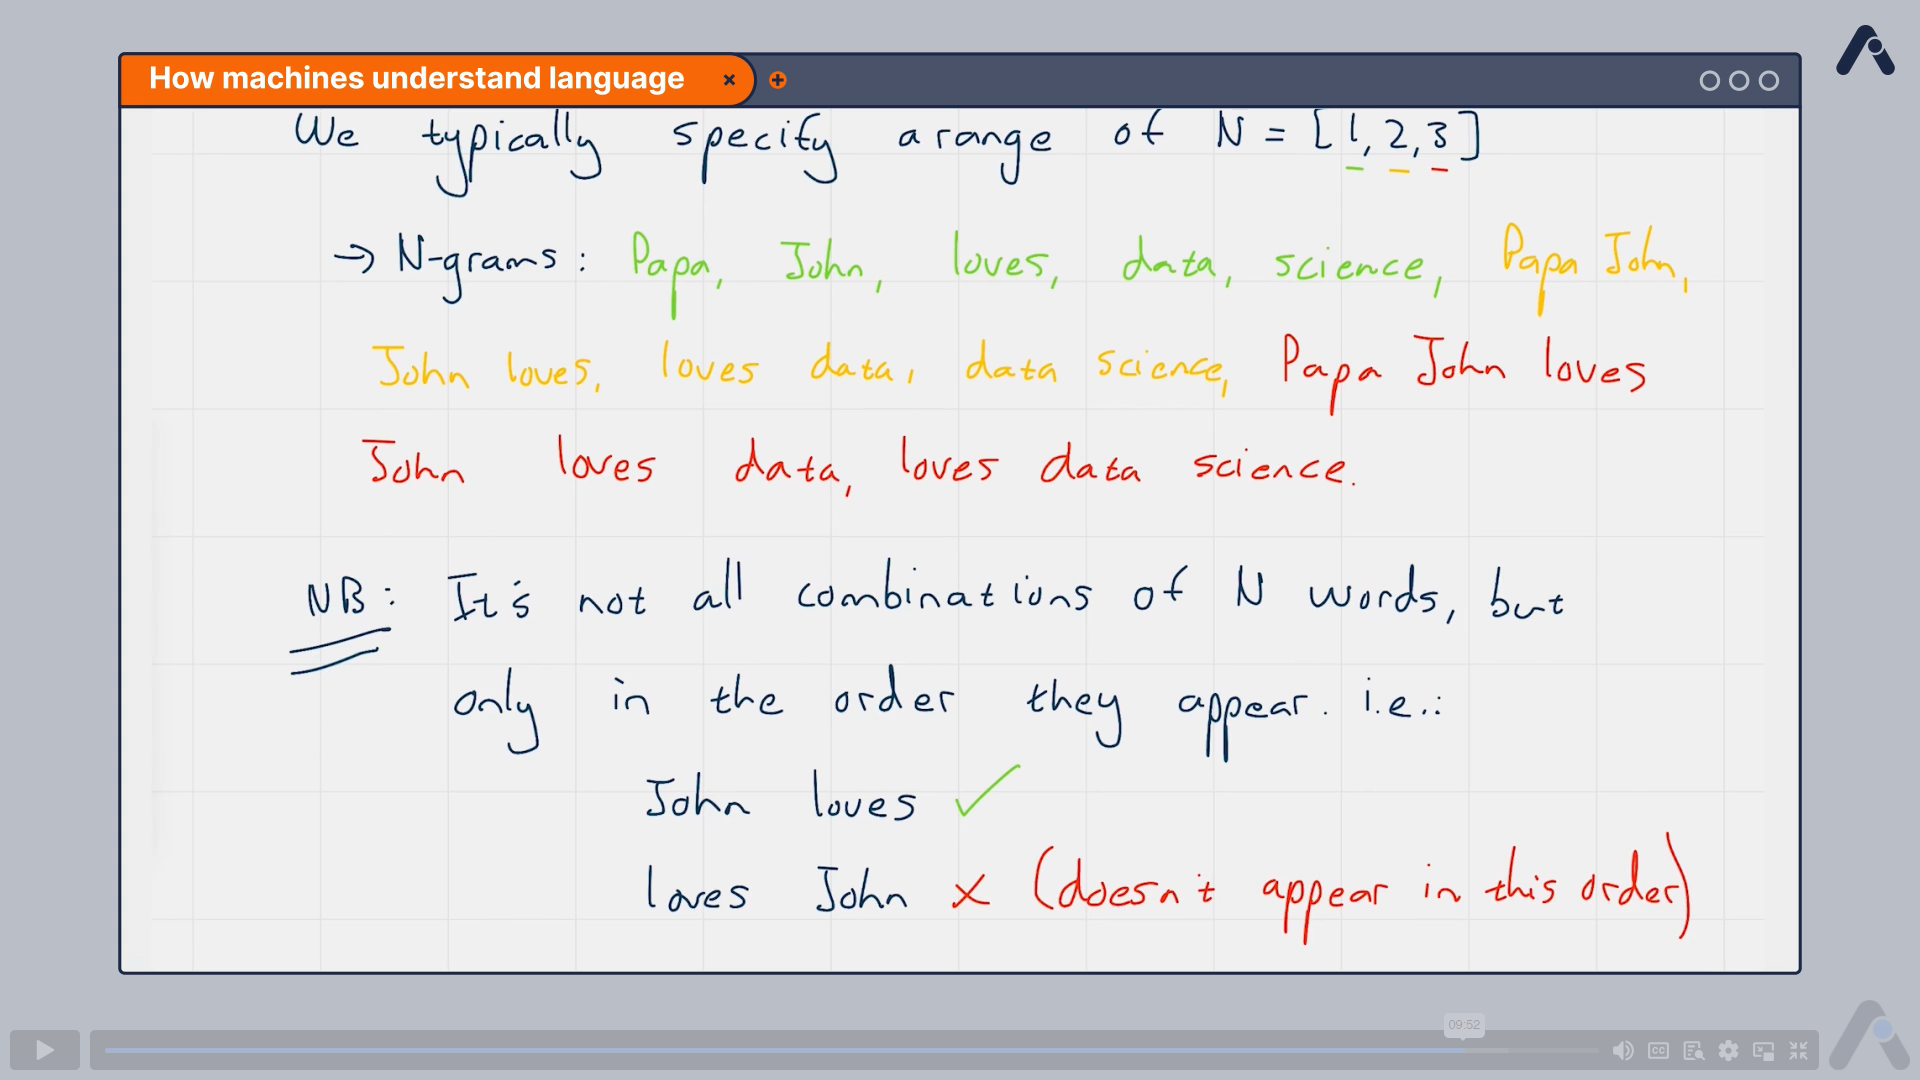 How machines understand language
We typically specify a range of N = [1, 2, 3]
→ N-grams: Papa, John, loves, data, science, Papa John,
John loves, loves data, data science, Papa John loves
John loves data, loves data science.
NB: It's not all combinations of N words, but
only in the order they appear. i.e.:
John loves ✓
loves John ✗ (doesn't appear in this order)
09:52
CC